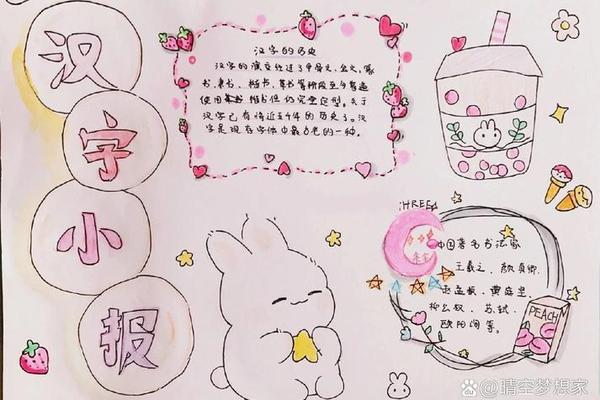 汉
字
小
报
汉字的历史
汉字的演变经过了甲骨文、金文、篆
书、隶书、楷书、草书等阶段至今普遍
使用 楷书但仍完全定型。关于
汉字已有将近五千年的历史了。汉
字是现存字体中最古老的一种。
HREE
中国著名书法家
王羲之、颜真卿、
赵孟頫、黄庭坚、
柳公权、苏轼、
欧阳询等。
PEACH
晴空梦想家